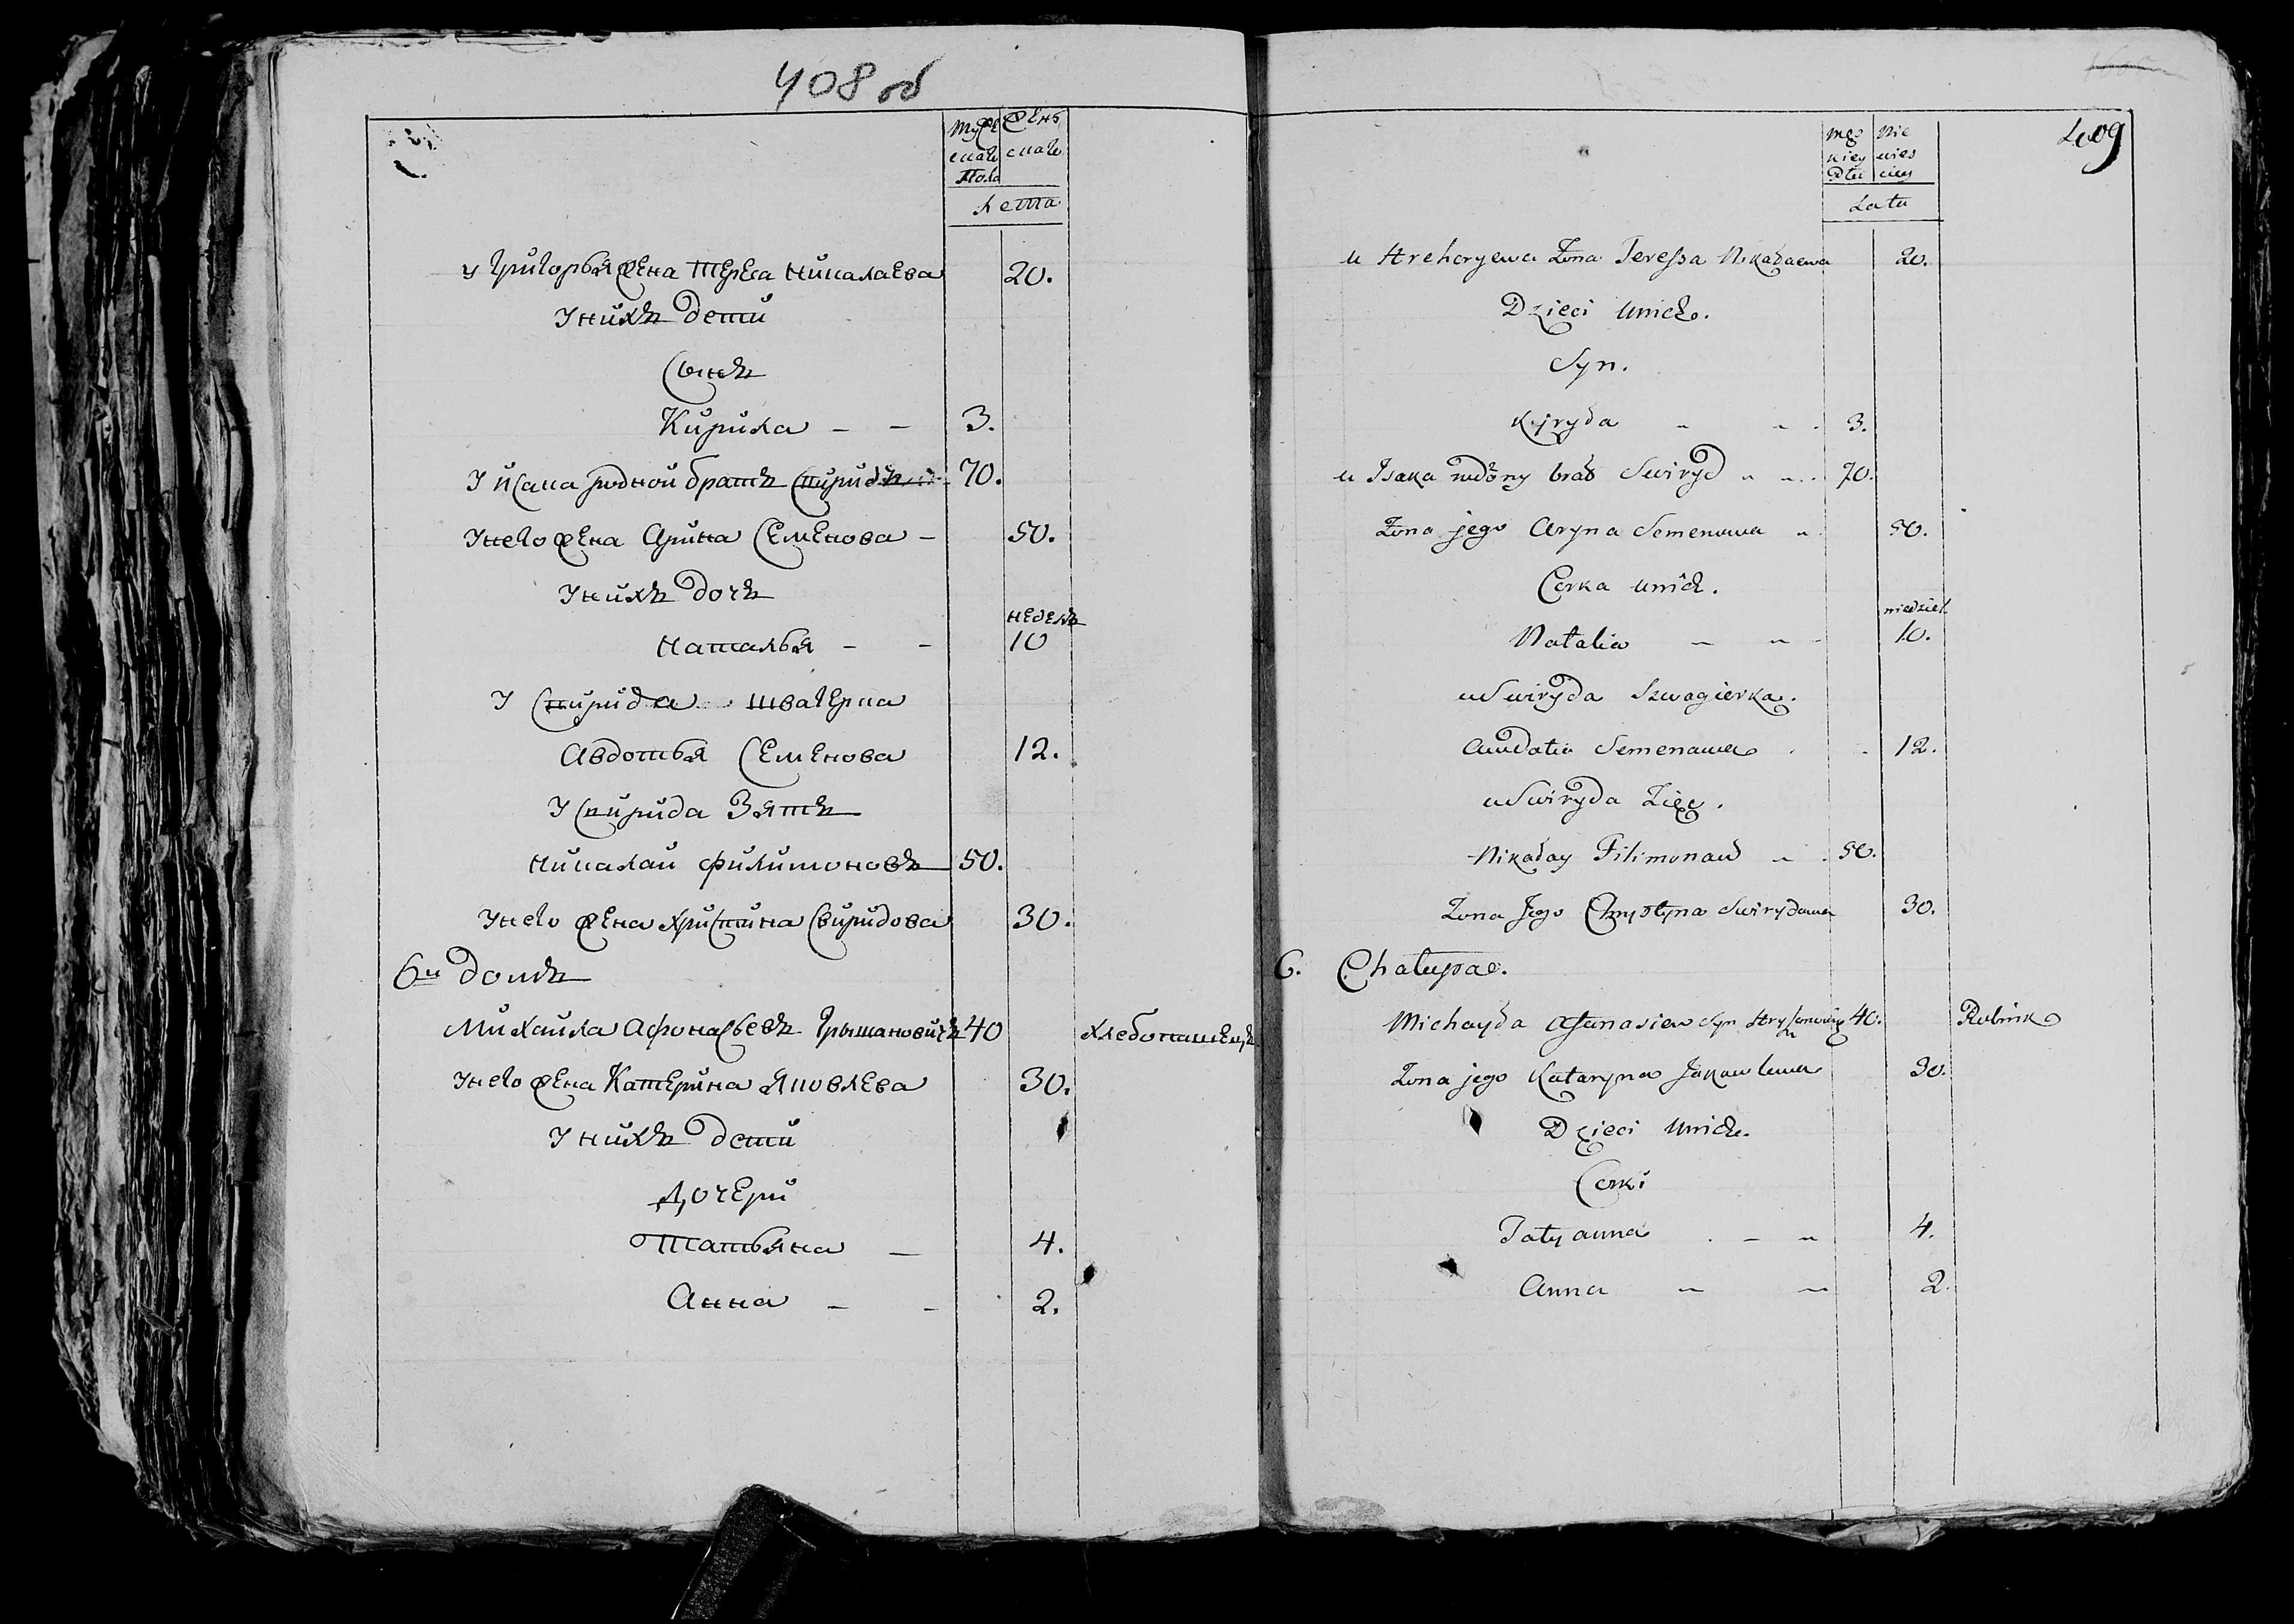 408 об
Мужескаго пола
Женскаго
Лета
у Григорья жена Тереса Николаева 20.
У нихъ дети
Сынъ
Кирила - - 3.
У Исака родной братъ Спиридъ 70.
У него жена Арина Семенова - 50.
У нихъ дочь
неделъ
Наталья - - 10
У Спирида швагерка
Авдотья Семенова 12.
У Спирида Зять
Николай Филимоновъ 50.
У него жена Христина Свиридова 30.
6й домъ
Михайла Афонасьевъ Грышановичъ 40 хлебопашецъ
У него жена Катерина Яковлева 30.
У нихъ дети
Дочери
Татьяна - 4.
Анна - - 2.
409
męskiey Płci
niewiesciey
Lata
u Hrehoryewa Żona Teressa Nikałaewa 20.
Dzieci unich.
Syn.
Kiryła 3.
u Isaka rodzony brat Swiryd 70.
Żona jego Aryna Semenowa 50.
Corka unich.
niedziel
Natalia 10.
u Swiryda Szwagierka.
Awdotia Semenawa 12.
u Swiryda Zięć.
Nikałay Filimonaw 50.
Żona Jego Chrystyna Swirydawa 30.
6. Chałupa.
Michayła Afanasiew syn Hryszanowicz 40. Rolnik
Żona jego Kataryna Jakawlewa 30.
Dzieci unich.
Corki
Tatyanna 4.
Anna 2.